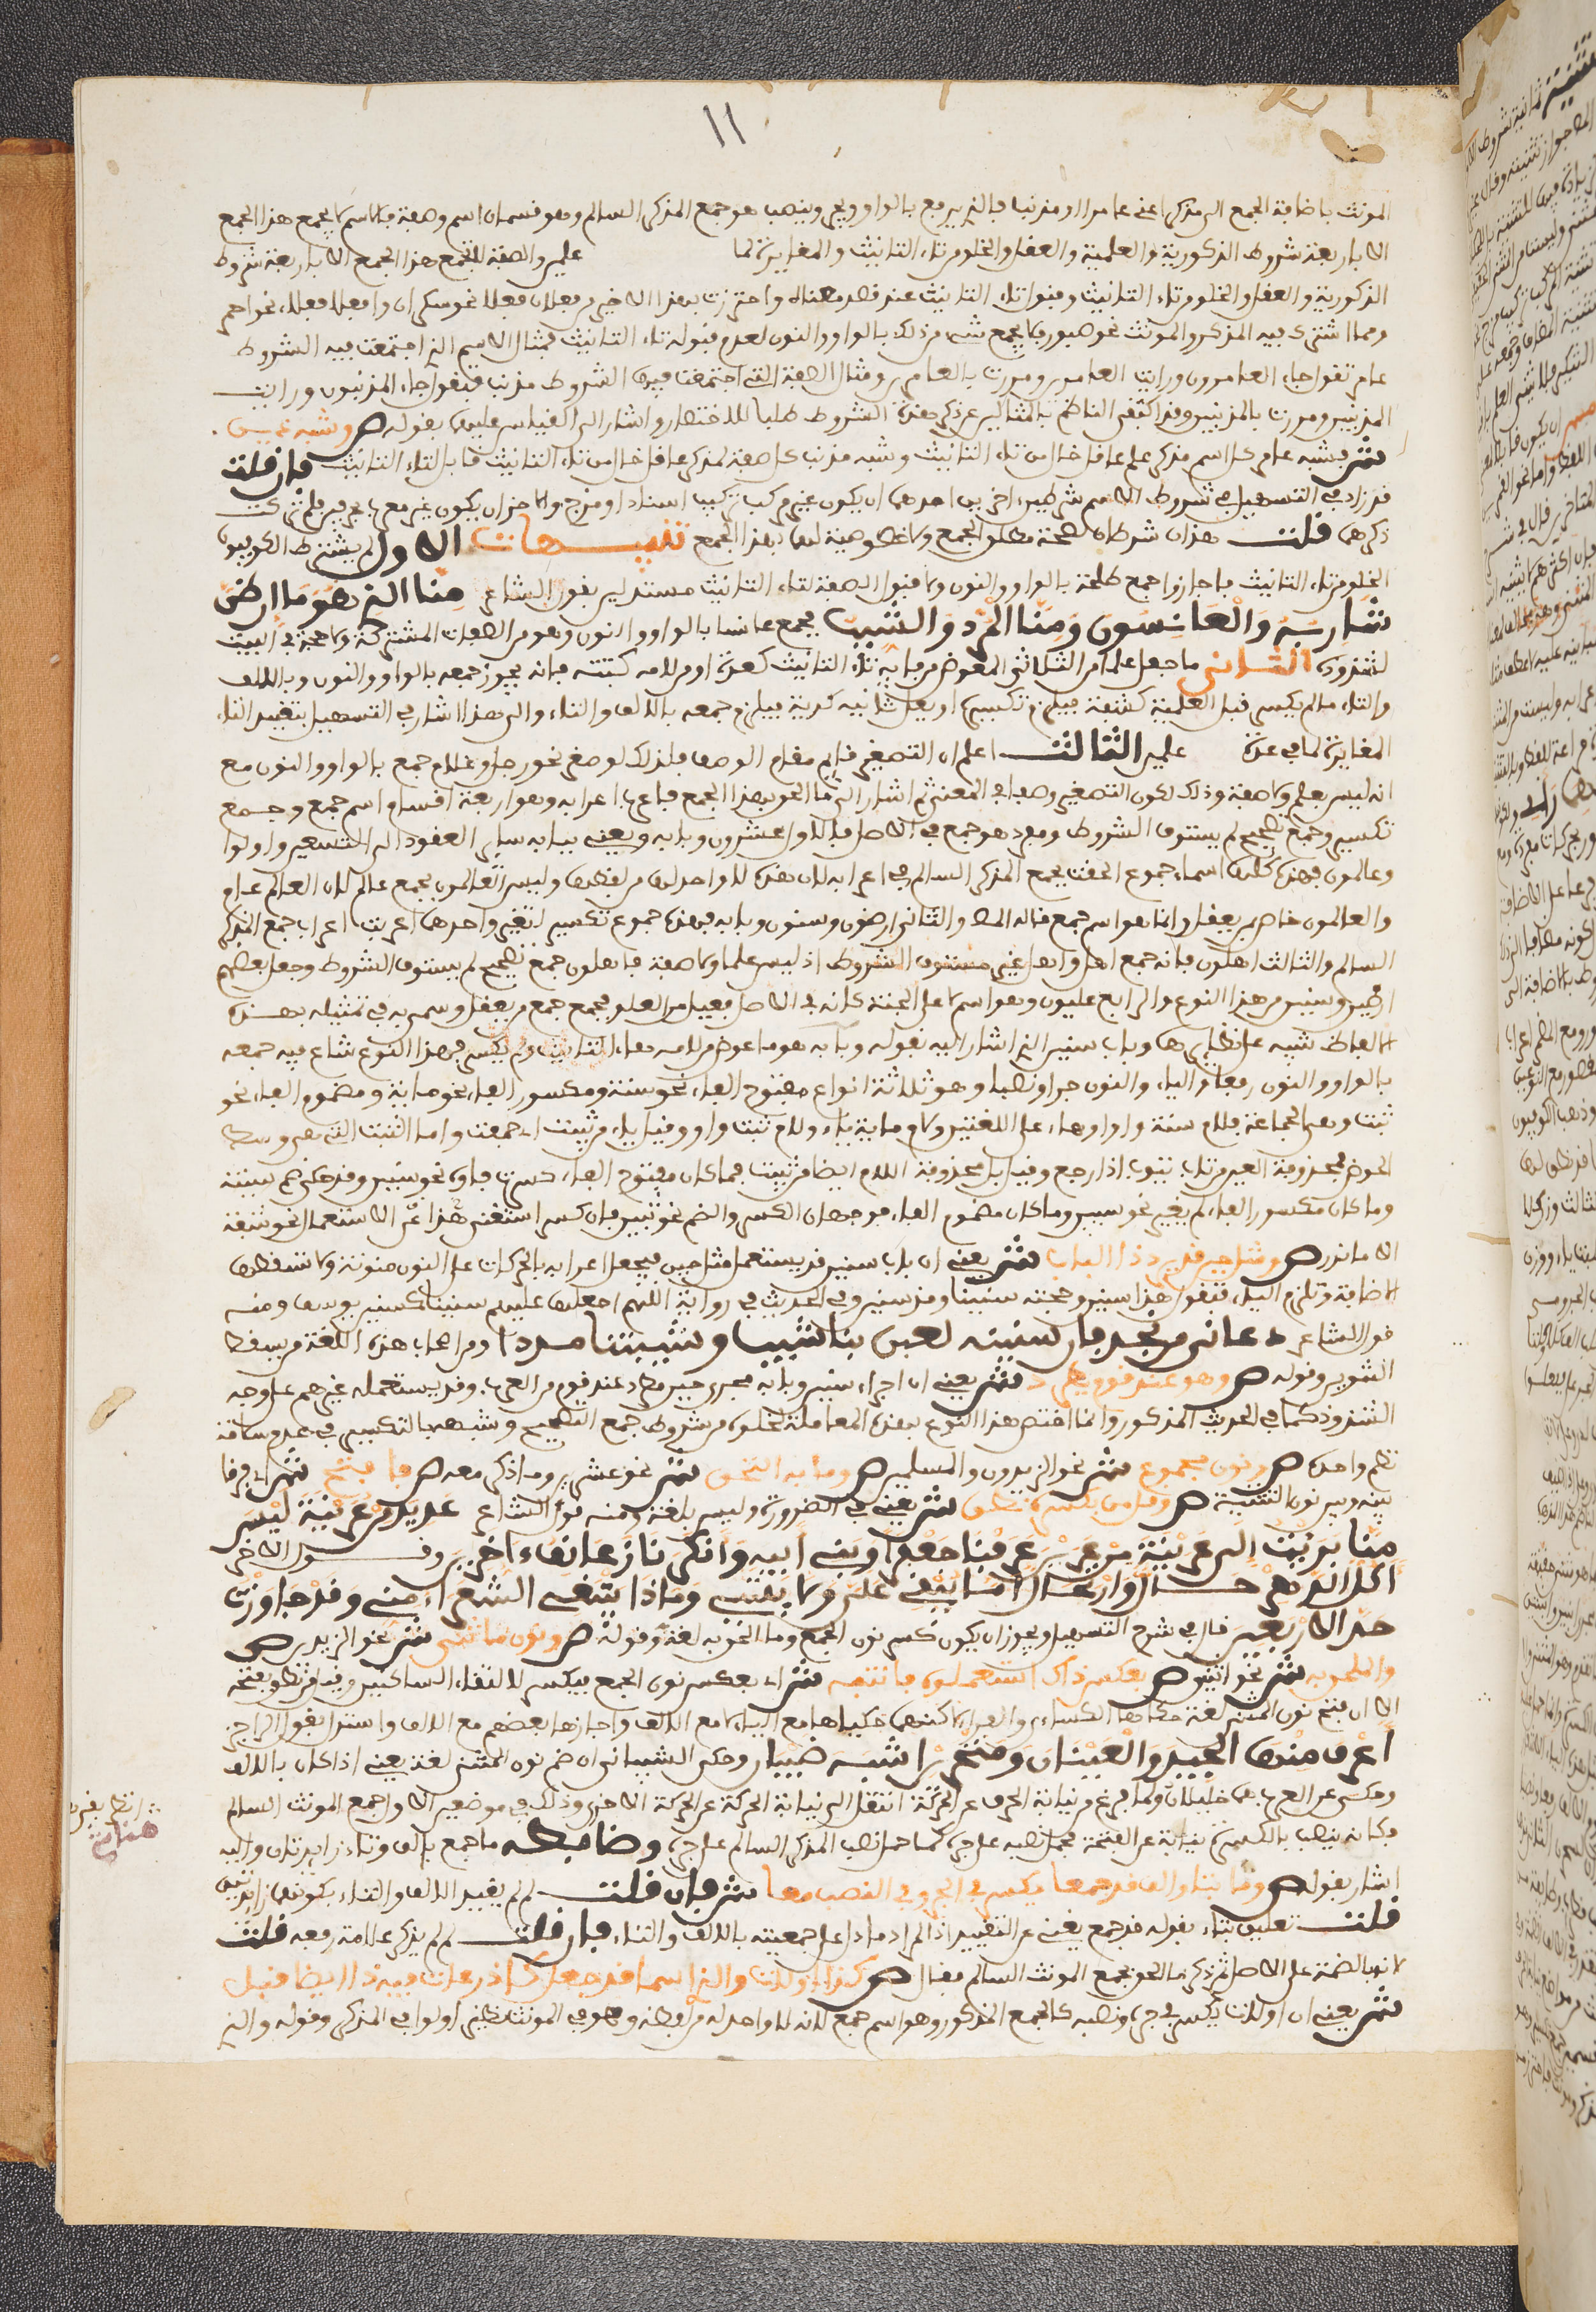 ١١
المونث باضافة الجمع الى مذكر اعنى عامرا ومذنبا فالذي يرفع بالواو ويجر وينصب هو جمع المذكر السالم وهو قسمان اسم وصفة فالاسم لا يجمع هذا الجمع
الا باربعة شروط الذكورية والعلمية والعقل والخلو من تاء التانيث والمغايرة لما علم والصفة لا تجمع هذا الجمع الا باربعة شروط
الذكورية والعقل والخلو من تاء التانيث وقبول تاء التانيث عند قصد معناه واحترزت بهذا الاخير من فعلان فعلا نحو سكران وافعل فعلاء نحو احمر
ومما اشترك فيه المذكر والمونث نحو صبور فلا يجمع شيء من ذلك بالواو والنون لعدم قبوله تاء التانيث فمثال الاسم الذي اجتمعت فيه الشروط
عامر تقول جاء العامرون ورايت العامرين ومررت بالعامرين ومثال الصفة التي اجتمعت فيها الشروط مذنب فتقول جاء المذنبون ورايت
المذنبين ومررت بالمذنبين وقد اكتفى الناظم بالمثالين عن ذكر هذه الشروط طلبا للاختصار واشار الى القياس عليهما بقوله ص وشبه ذين
ش فشبه عامر كل اسم مذكر علم عاقل خال من تاء التانيث وشبه مذنب كل صفة لمذكر عاقل خال من تاء التانيث قابل لتاء التانيث فان قلت
قد زاد في التسهيل في شروط الاسم شرطين اخرين احدهما ان يكون غير مركب تركيب اسناد او مزج والاخر ان يكون غير معرب بحرفين فلم ترك
ذكرهما قلت هذان شرطان لصحة مطلق الجمع ولا خصوصية لهما بهذا الجمع تنبيهات الاول لم يشترط الكوفيون
الخلو من تاء التانيث فاجازوا جمع طلحة بالواو والنون ولا قبول الصفة لتاء التانيث مستدلين بقول الشاعر منا الذي هو ما ان طر
شاربه والعانسون ومنا المرد والشيب فجمع عانسا بالواو والنون وهو من الصفات المشتركة ولا حجة في البيت
لشذوذه الثاني ما جعل علما من الثلاثي المعوض من فايه تاء التانيث كعدة او من لامه كثبة فانه يجوز جمعه بالواو والنون وبالالف
والتاء ما لم يكسر قبل العلمية كشفة فيلزم تكسيره او يعل ثانيه كدية فيلزم جمعه بالالف والتاء والى هذا اشار في التسهيل بتقييد التاء
المغايرة لما في عدة علم الثالث اعلم ان التصغير قايم مقام الوصف فلذلك لو صغر نحو رجل وغلام جمع بالواو والنون مع
انه ليس بعلم ولا صفة وذلك لكون التصغير وصفا في المعنى ثم اشار الى ما الحق بهذا الجمع فباعراب اعرابه وهو اربعة اقسام اسم جمع وجمع
تكسير وجمع تصحيح لم يستوف الشروط ومفرد هو جمع في الاصل فالاول عشرون وبابه ويعني ببابه ساير العقود الى التسعين واولوا
وعالمون فهذه كلها اسماء جموع الحقت بجمع المذكر السالم في اعرابه لان هذه لا واحد لها من لفظها وليس العالمون بجمع عالم لان العالم عام
والعالمون خاص بمن يعقل وانما هو اسم جمع قاله المص والثاني ارضون وسنون وبابه فهذه جموع تكسير لتغير واحدها اعربت اعراب جمع المذكر
السالم والثالث اهلون فانه جمع اهل واهل غير مستوف الشروط اذ ليس علما ولا صفة فاهلون جمع تصحيح لم يستوف الشروط وجعل بعضهم
ارضين وسنين من هذا النوع والرابع عليون وهو اسم لاعلى الجنة كانه في الاصل فعيل من العلو فجمع جمع من يعقل وسمى به في تمثيله بهذه
الالفاظ تنبيه على نظايرها وباب سنين الذي اشار اليه بقوله وبابه هو ما عوض من لامه هاء التانيث ولم يكسر فهذا النوع شاع فيه جمعه
بالواو والنون رفعا والياء والنون جرا ونصبا وهو ثلاثة انواع مفتوح الفاء نحو سنة ومكسور الفاء نحو ماية ومضموم الفاء نحو
ثبة وهي الجماعة فلام سنة واو او هاء على اللغتين ولام ماية ياء ولام ثبة واو وقيل ياء من ثبيت اي جمعت واما الثبة التي هي وسط
الحوض فمحذوفة العين من ثاب يثوب اذا رجع وقيل بل محذوفة اللام ايضا من ثبيت فما كان مفتوح الفاء كسرت فاوه نحو سنين وقد حكي ضم سينه
وما كان مكسور الفاء لم يغير نحو ميين وما كان مضموم الفاء فوجهان الكسر والضم نحو ثبين فان كسر استغنى هذا عن الاستعمال نحو شفة
الا ما ندر ص ومثل حين قد يرد ذا الباب ش يعني ان باب سنين قد يستعمل مثل حين فيجعل اعرابه بالحركات على النون منونة ولا تسقطها
الاضافة وتلزم الياء فتقول هذا سنين وصحبته سنينا ومذ سنين وفي الحديث في رواية اللهم اجعلها عليهم سنينا كسنين يوسف ومنه
قول الشاعر دعاني من نجد فان سنينه لعبن بنا شيبا وشيبننا مردا ومن اصحاب هذه اللغة من يسقط
التنوين وقوله ص وهو عند قوم يطرد ش يعني ان اجراء سنين وبابه مجرى حين مطرد عند قوم من العرب وقد يستعمله غيرهم على وجه
الشذوذ كما في الحديث المذكور وانما اختص هذا النوع بهذه المعاملة لخلوه من شروط جمع التصحيح وشبهه بالتكسير في عدم سلامة
نظم واحده ص ونون مجموع ش نحو الزيدون والمسلمين ص وما به التحق ش نحو عشرين وما ذكر معه ص فافتح ش اي فرقا
بينه وبين نون التثنية ص وقل من بكسره نطق ش يعني في الضرورة وليس بلغة ومنه قول الشاعر عرين من عرينة ليس
منا بريت الى عرينة من عرين عرفنا جعفرا وبني ابيه وانكرنا زعانف اخرين وقول الاخر
اكل الدهر حل وارتحال اما يبقي علي ولا يقيني وماذا تبتغي الشعراء مني وقد جاوزت
حد الاربعين قال في شرح التسهيل ويجوز ان يكون كسر نون الجمع وما الحق به لغة وقوله ص ونون ما ثني ش نحو الزيدين ص
والملحق به ش نحو اثنين ص بعكس ذاك استعملوه فانتبه ش اي بعكس نون الجمع فيكسر لالتقاء الساكنين وقل من نطق بفتحه
الا ان فتح نون المثنى لغة حكاها الكساءي والفراء لكنهما حكياها مع الياء لا مع الالف واجازها بعضهم مع الالف واستدل بقول الراجز
اعرف منها الجيد والعينان ومنخرين اشبها ظبيان وحكى الشيباني ان ضم نون المثنى لغة يعني اذا كان بالالف
وحكي عن العرب هما خليلان ولما فرغ من نيابة الحرف عن الحركة انتقل الى نيابة الحركة عن الحركة الاخرى وذلك في موضعين الاول جمع المونث السالم
فكانه ينصب بالكسرة نيابة عن الفتحة فحمل نصبه على جره كما حمل نصب المذكر السالم على جره وضابطه ما جمع بالف وتاء زايدتان واليه
اشار بقوله ص وما بتا والف قد جمعا يكسر في الجر وفي النصب معا ش فان قلت لم لم يقيد الالف والتاء بكونهما زايدتين
قلت تعليق بتاء بقوله قد جمع يغني عن التقييد اذ المراد ما دل على جمعيته بالالف والتاء فان قلت لم لم يذكر علامة رفعه قلت
لانها الضمة على الاصل ثم ذكر ما الحق بجمع المونث السالم فقال ص كذا اولات والذي اسما قد جعل كاذرعات فيه ذا ايضا قبل
ش يعني ان اولات يكسر في جره ونصبه كالجمع المذكور وهو اسم جمع لانه لا واحد له من لفظه وهو في المونث نظير اولوا في المذكر وقوله والذي